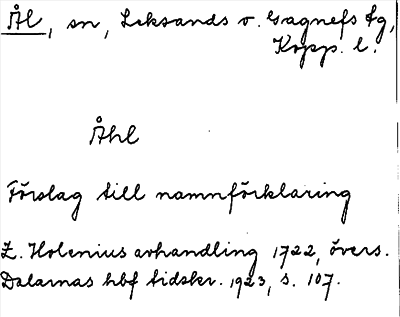 Ål, sn, Leksands o. Gagnefs tg,
Kopp. l.
Åhl
Förslag till namnförklaring
Z. Holenius avhandling 1722, övers.
Dalarnas hbf tidskr. 1923, s. 107.